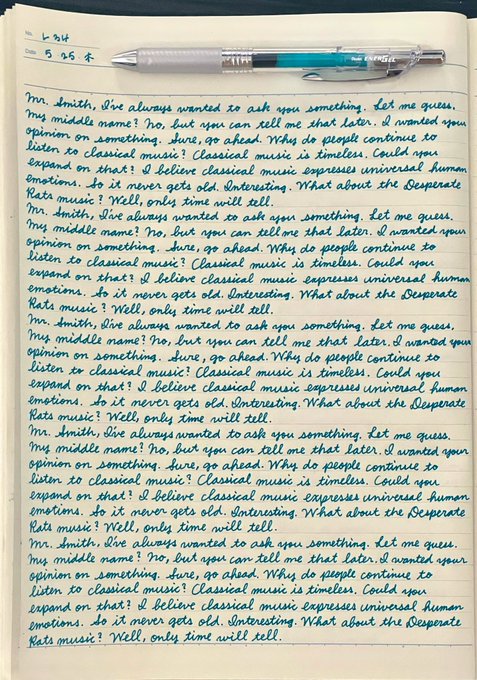 No. L 34
Date 5 25 木
Pentel ENERGEL
Mr. Smith, I've always wanted to ask you something. Let me guess.
My middle name? No, but you can tell me that later. I wanted your
opinion on something. Sure, go ahead. Why do people continue to
listen to classical music? Classical music is timeless. Could you
expand on that? I believe classical music expresses universal human
emotions. So it never gets old. Interesting. What about the Desperate
Rats music? Well, only time will tell.
Mr. Smith, I've always wanted to ask you something. Let me guess.
My middle name? No, but you can tell me that later. I wanted your
opinion on something. Sure, go ahead. Why do people continue to
listen to classical music? Classical music is timeless. Could you
expand on that? I believe classical music expresses universal human
emotions. So it never gets old. Interesting. What about the Desperate
Rats music? Well, only time will tell.
Mr. Smith, I've always wanted to ask you something. Let me guess.
My middle name? No, but you can tell me that later. I wanted your
opinion on something. Sure, go ahead. Why do people continue to
listen to classical music? Classical music is timeless. Could you
expand on that? I believe classical music expresses universal human
emotions. So it never gets old. Interesting. What about the Desperate
Rats music? Well, only time will tell.
Mr. Smith, I've always wanted to ask you something. Let me guess.
My middle name? No, but you can tell me that later. I wanted your
opinion on something. Sure, go ahead. Why do people continue to
listen to classical music? Classical music is timeless. Could you
expand on that? I believe classical music expresses universal human
emotions. So it never gets old. Interesting. What about the Desperate
Rats music? Well, only time will tell.
Mr. Smith, I've always wanted to ask you something. Let me guess.
My middle name? No, but you can tell me that later. I wanted your
opinion on something. Sure, go ahead. Why do people continue to
listen to classical music? Classical music is timeless. Could you
expand on that? I believe classical music expresses universal human
emotions. So it never gets old. Interesting. What about the Desperate
Rats music? Well, only time will tell.